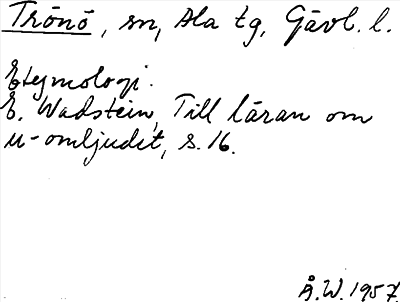 Trönö, sn, Ala tg, Gävl. l.
Etymologi.
E. Wadstein, Till läran om
u-omljudet, s. 16.
Å.W. 1957.